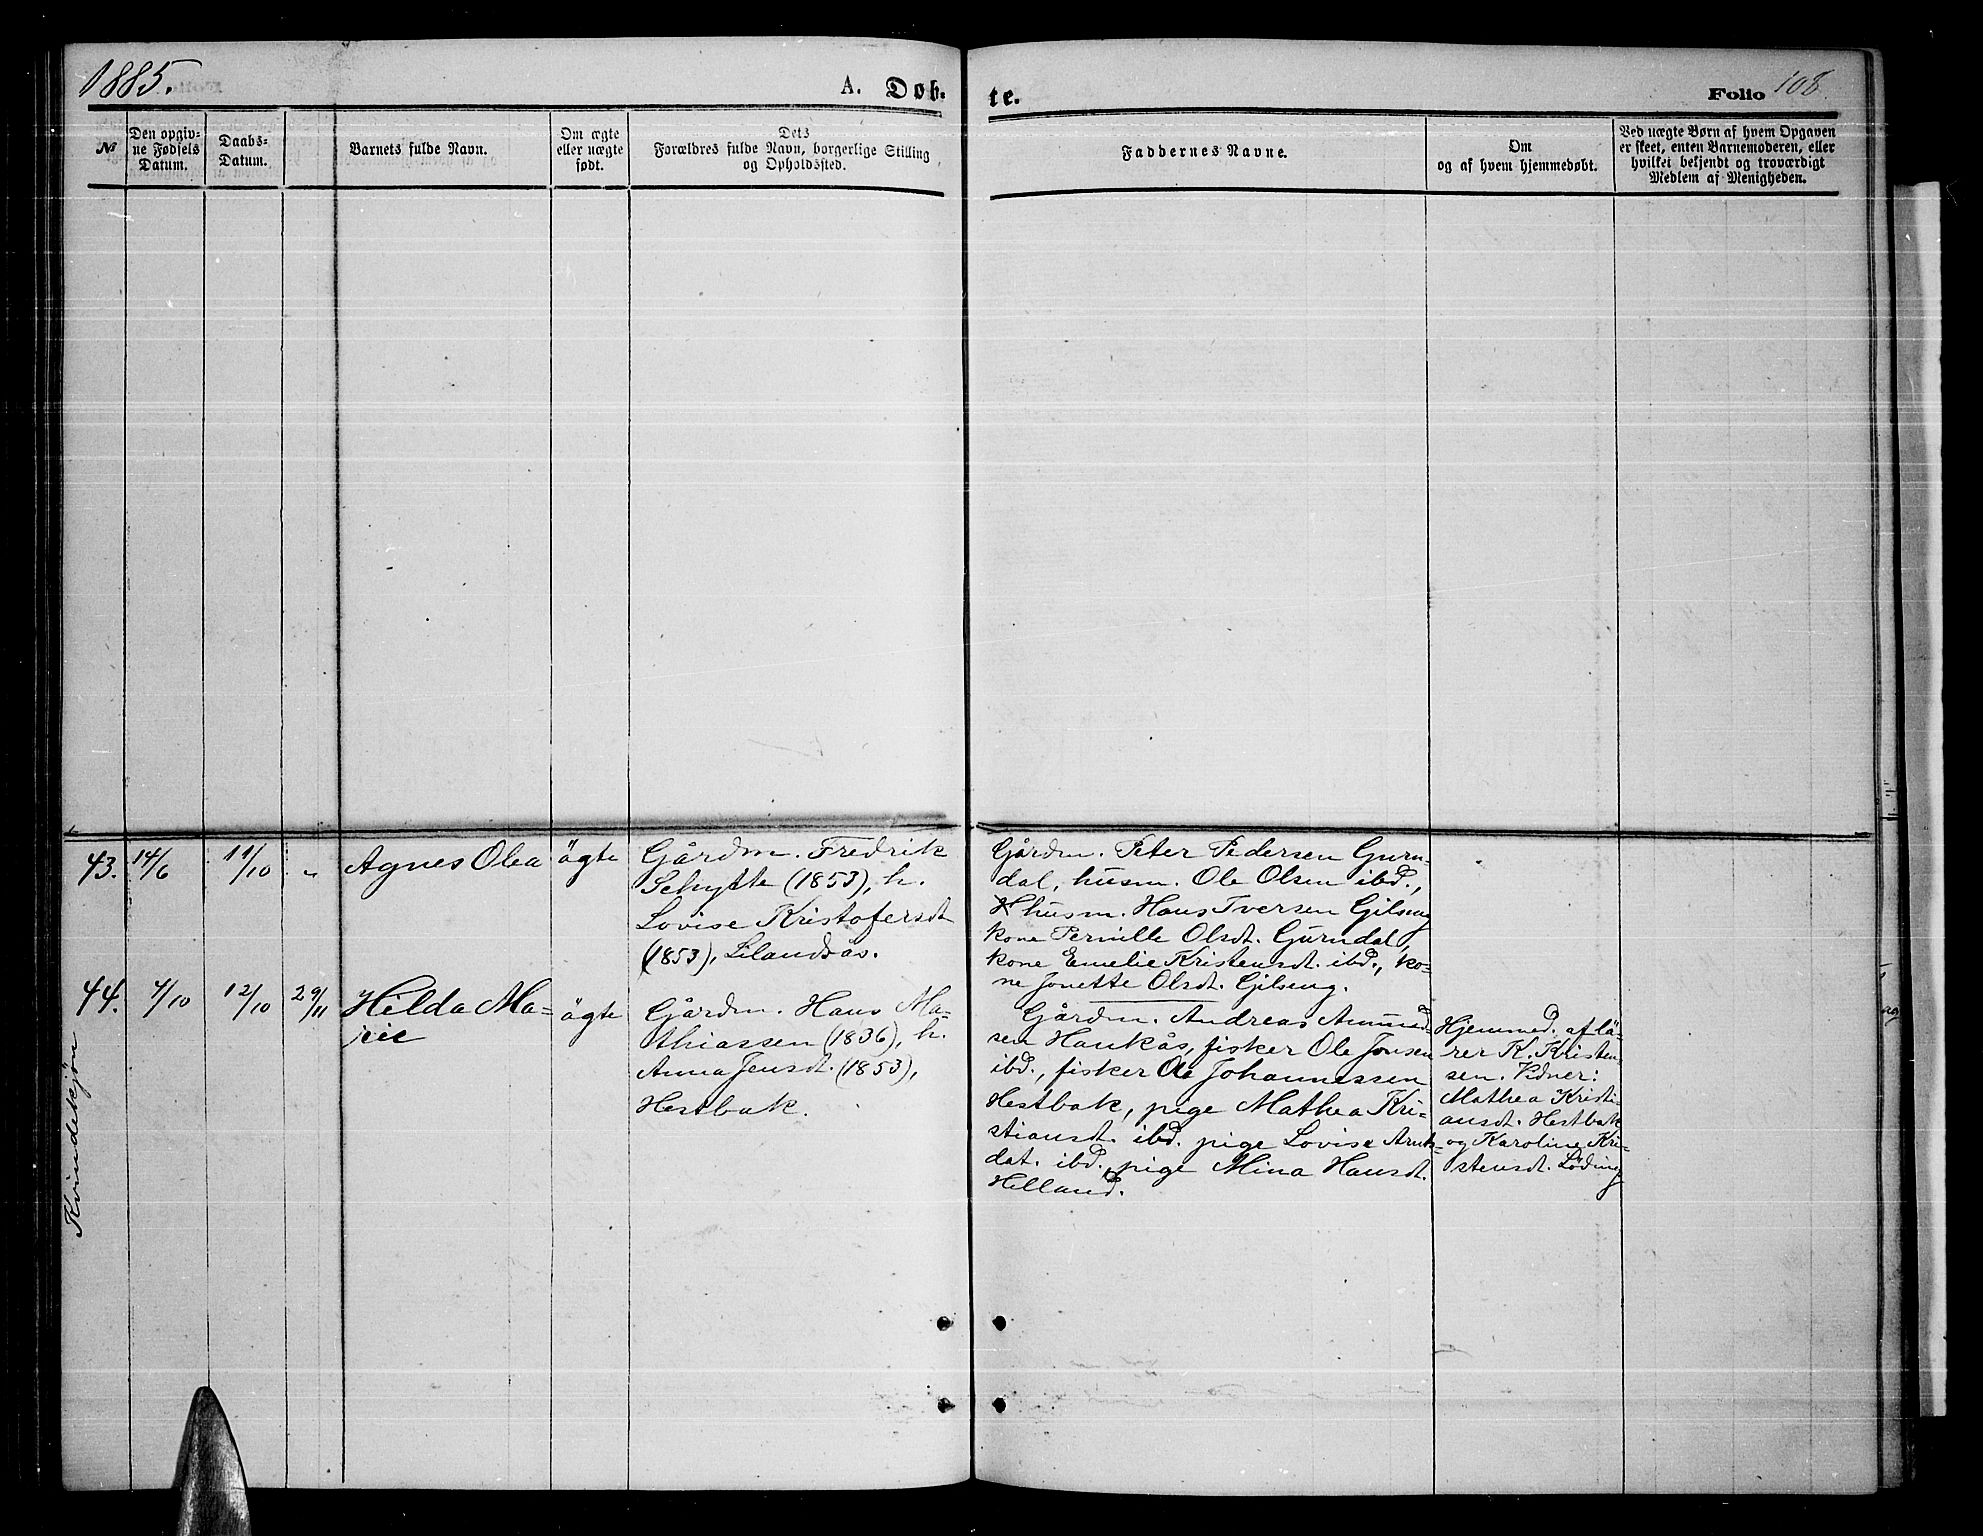 1885.
A. Døb-
te.
Folio 108.
№
Den opgiv-
ne Fødsels
Datum.
Daabs-
Datum.
Barnets fulde Navn.
Om ægte
eller uægte
født.
Dets
Forældres fulde Navn, borgerlige Stilling
og Opholdssted.
Faddernes Navne.
Om
og af hvem hjemmedøbt.
Ved uægte Børn af hvem Opgaven
er skeet, enten Barnemoderen, eller
hvilket bekjendt og troværdigt
Medlem af Menigheden.
Kvindekjøn
43.
14/6
11/10
"
Agnes Olea
ägte
Gårdm. Fredrik
Schytte (1853), h.
Lovise Kristofersdt
(1853), Lilandsås.
Gårdm. Peter Pedersen Gurn-
dal, husm. Ole Olsen ibd.,
husm. Hans Iversen Gilseng
kone Pernille Olsdt. Gurndal,
kone Emelie Kristensdt. ibd., ko-
ne Jonette Olsdt. Gilseng.
44.
4/10
12/10
29/11
Hilda Ma-
rie
ägte
Gårdm. Hans Ma-
thiassen (1836), h.
Anna Jensdt. (1853),
Hestbak.
Gårdm. Andreas Amund-
sen Haukås, fisker Ole Jonsen
ibd., fisker Ole Johannessen
Hestbak, pige Mathea Kri-
stiansdt. ibd. pige Lovise Arnts-
dat. ibd., pige Mina Hansdt.
Helland.
Hjemmed. af lä-
rer K. Kristen-
sen. Vidner:
Mathea Kristi-
ansdt. Hestbak
og Karoline Kri-
stensdt. Löding